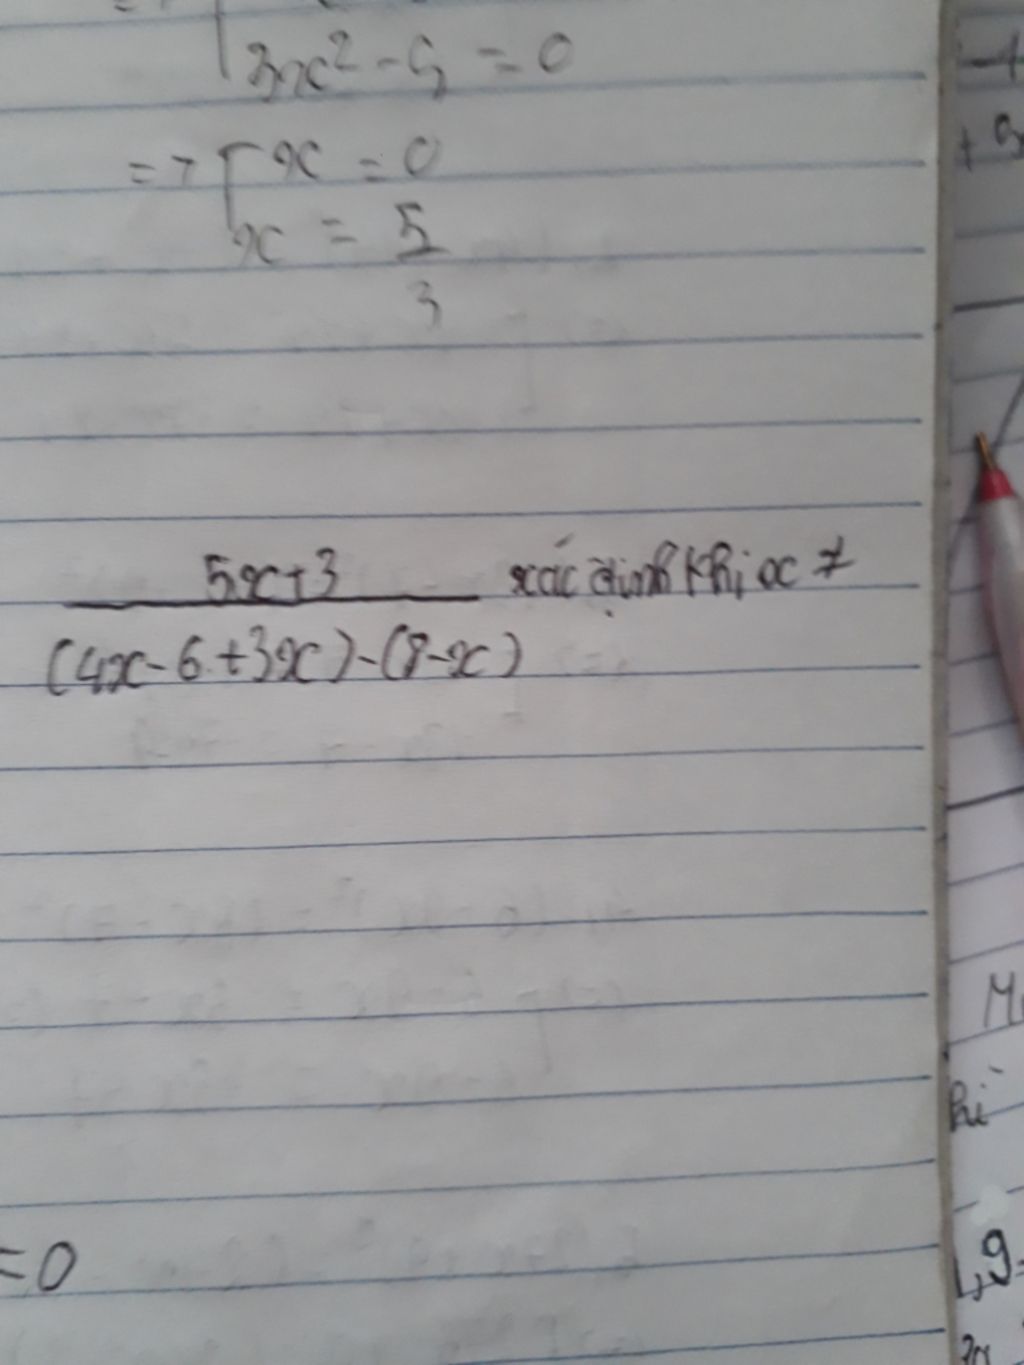 3x² - 5 = 0
=> [ x = 0
x = 5/3
5x+3 / (4x-6+3x)-(8-x) xác định khi x ≠
= 0